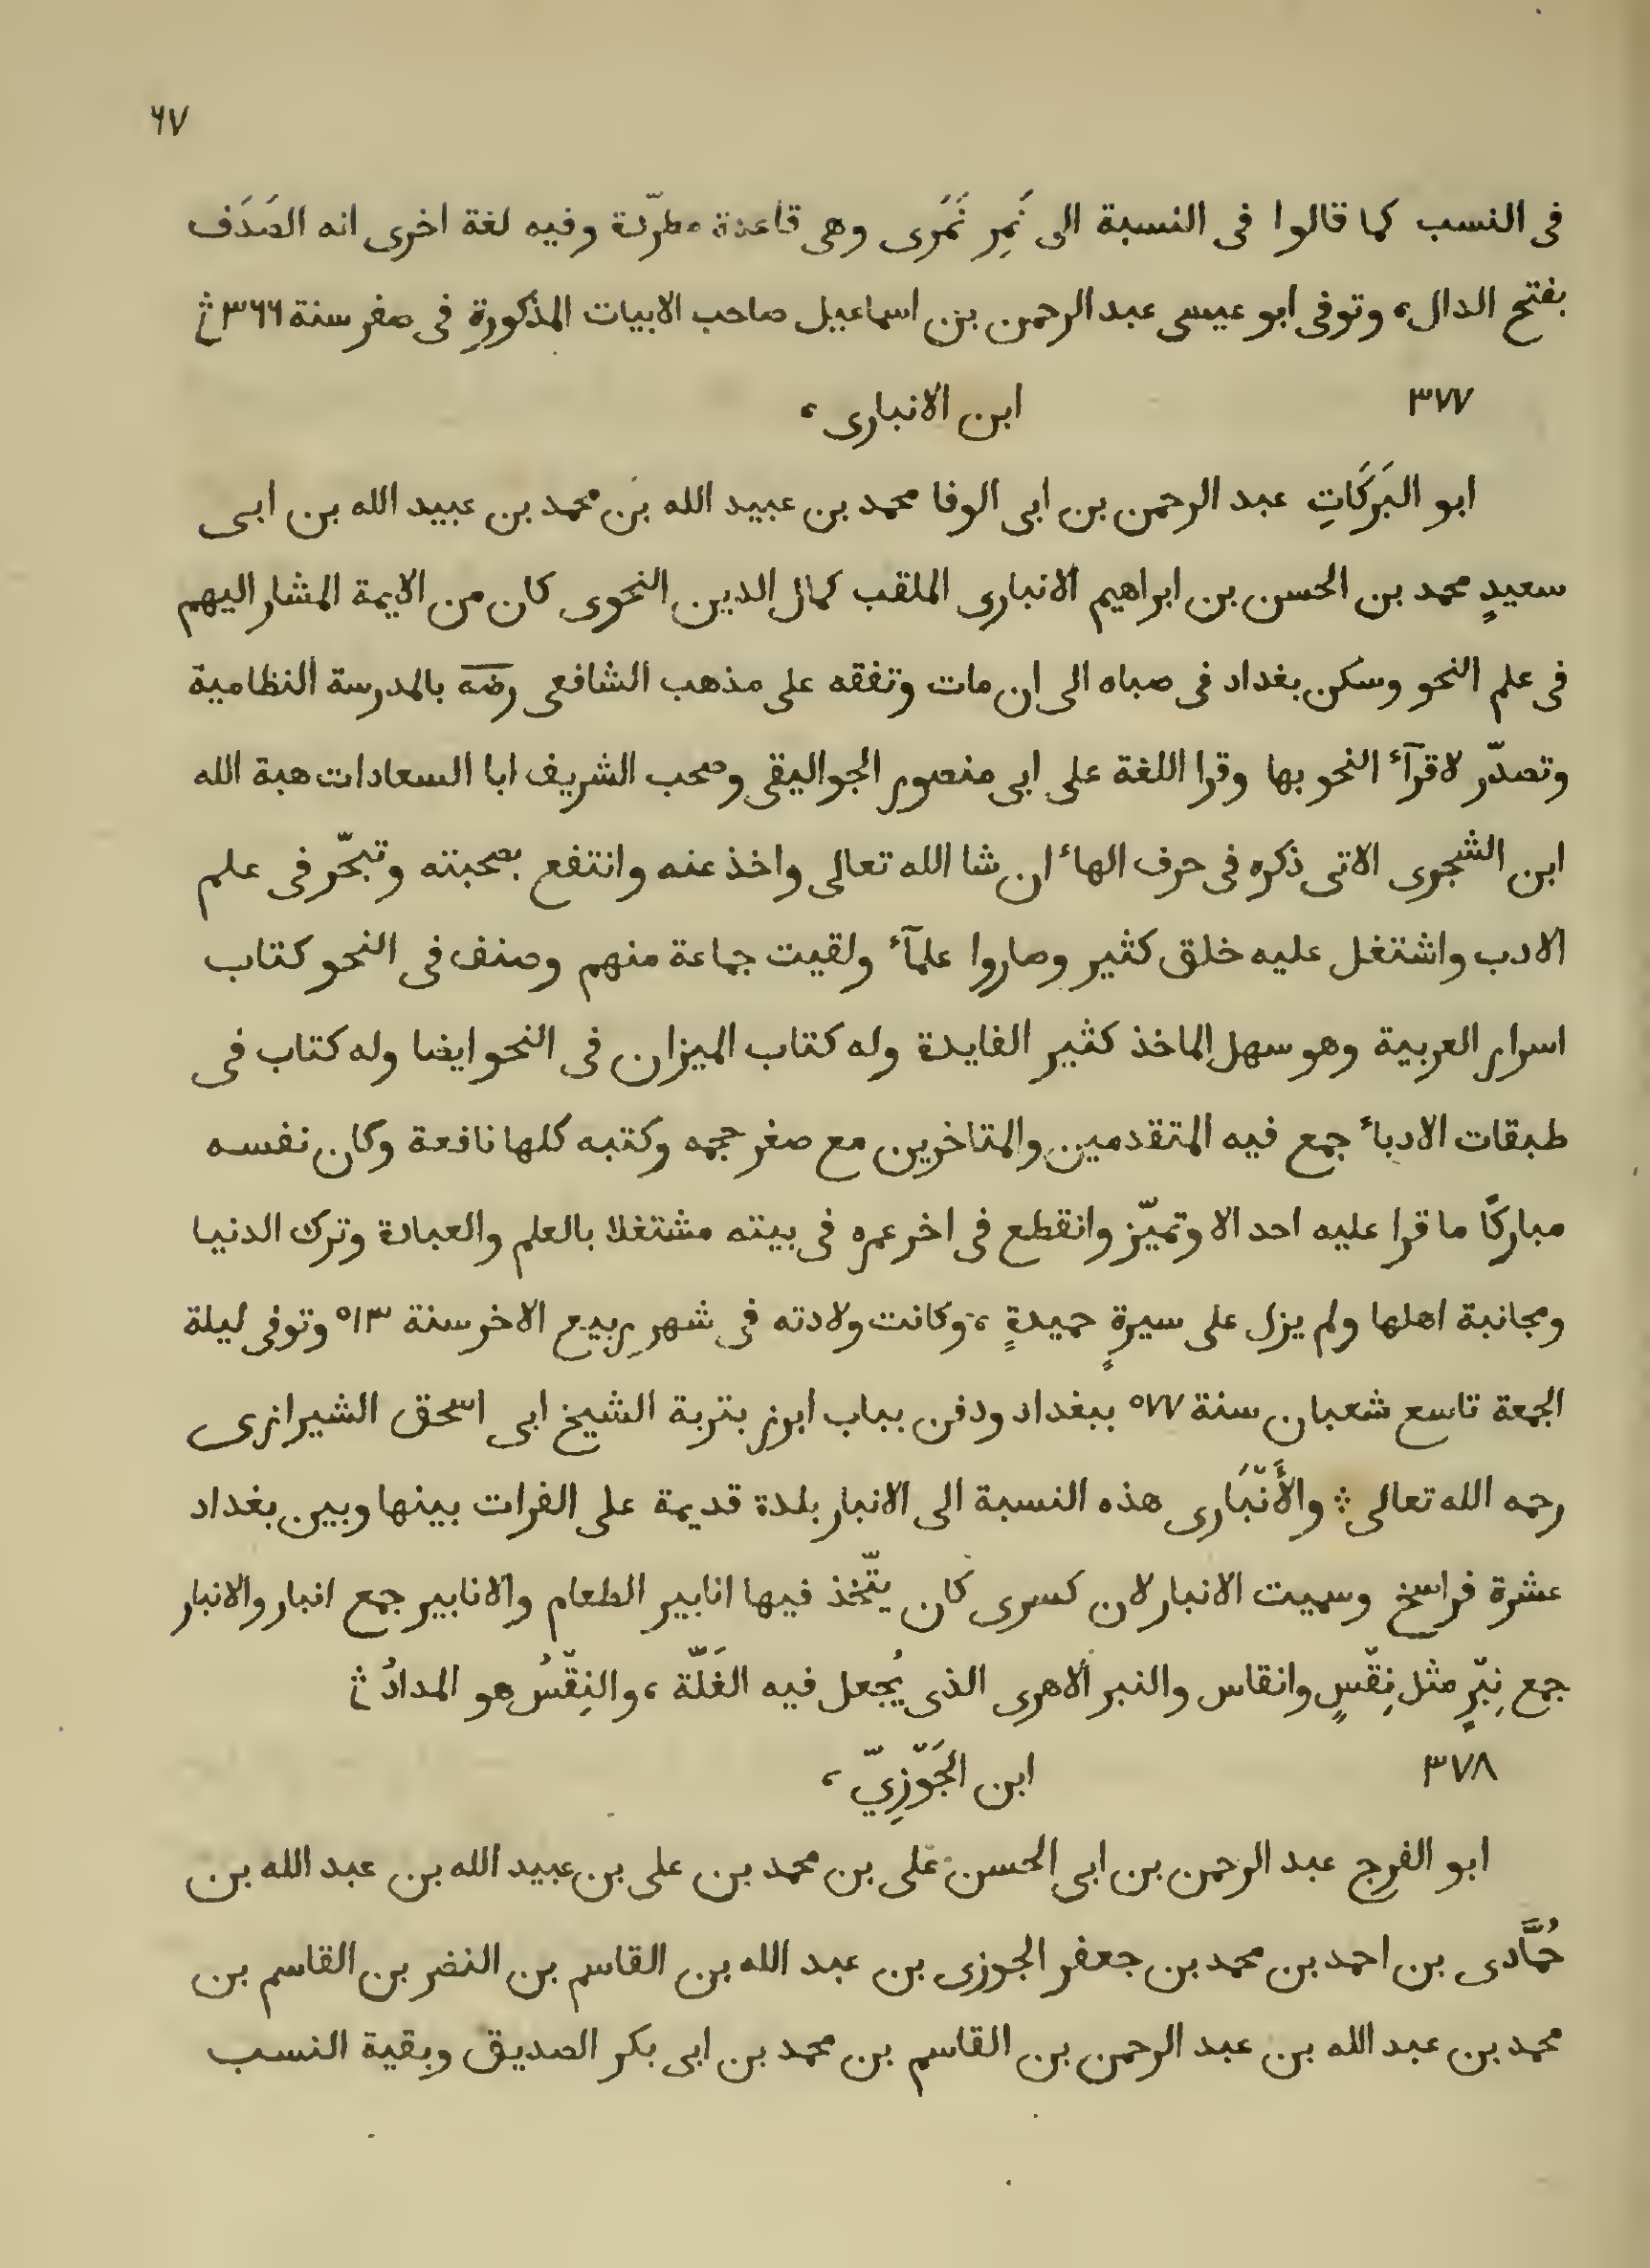 ٦٧
فى النسب كما قالوا فى النسبة الى نَمِر نَمَرى وهى قاعدة مطرّدة وفيه لغة اخرى انه الصَدَف
بفتح الدال، وتوفى ابو عيسى عبد الرحمن بن اسماعيل صاحب الابيات المذكورةِ فى صفر سنة ٣٦٦
٣٧٧ ابن الانبارى ،
ابو البَرَكَاتِ عبد الرحمن بن ابى الوفا محمد بن عبيد الله بن محمد بن عبيد الله بن ابى
سعيدٍ محمد بن الحسن بن ابراهيم الانبارى الملقب كمال الدين النحوى كان من الايمة المشار اليهم
فى علم النحو وسكن بغداد فى صباه الى ان مات وتفقه على مذهب الشافعى رضه بالمدرسة النظامية
وتصدّر لاقرآء النحو بها وقرا اللغة على ابى منصور الجواليقى وصحب الشريف ابا السعادات هبة الله
ابن الشجرى الاتى ذكره فى حرف الهاء ان شا الله تعالى واخذ عنه وانتفع بصحبته وتبحّر فى علم
الادب واشتغل عليه خلق كثير وصاروا علمآء ولقيت جماعة منهم وصنف فى النحو كتاب
اسرار العربية وهو سهل الماخذ كثير الفايدة وله كتاب الميزان فى النحو ايضا وله كتاب فى
طبقات الادباء جمع فيه المتقدمين والمتاخرين مع صغر حجمه وكتبه كلها نافعة وكان نفسه
مباركًا ما قرا عليه احد الا وتميّز وانقطع فى اخر عمره فى بيته مشتغلا بالعلم والعبادة وترك الدنيا
ومجانبة اهلها ولم يزل على سيرةٍ حميدةٍ ، وكانت ولادته فى شهر ربيع الاخر سنة ٥١٣ وتوفى ليلة
الجمعة تاسع شعبان سنة ٥٧٧ ببغداد ودفن بباب ابرز بتربة الشيخ ابى اسحق الشيرازى
رحمه الله تعالى ؞ والأَنْبَارى هذه النسبة الى الانبار بلدة قديمة على الفرات بينها وبين بغداد
عشرة فراسخ وسميت الانبار لان كسرى كان يتّخذ فيها انابير الطعام والانابير جمع انبار والانبار
جمع نِبْرٍ مثل نِقْسٍ وانقاس والنبر الاهرى الذى يُجعل فيه الغَلّة ، والنِقْسُ هو المدادُ
٣٧٨ ابن الجَوْزِيّ ،
ابو الفرج عبد الرحمن بن ابى الحسن على بن محمد بن على بن عبيد الله بن عبد الله بن
حُمَّادى بن احمد بن محمد بن جعفر الجوزى بن عبد الله بن القاسم بن النضر بن القاسم بن
محمد بن عبد الله بن عبد الرحمن بن القاسم بن محمد بن ابى بكر الصديق وبقية النسب